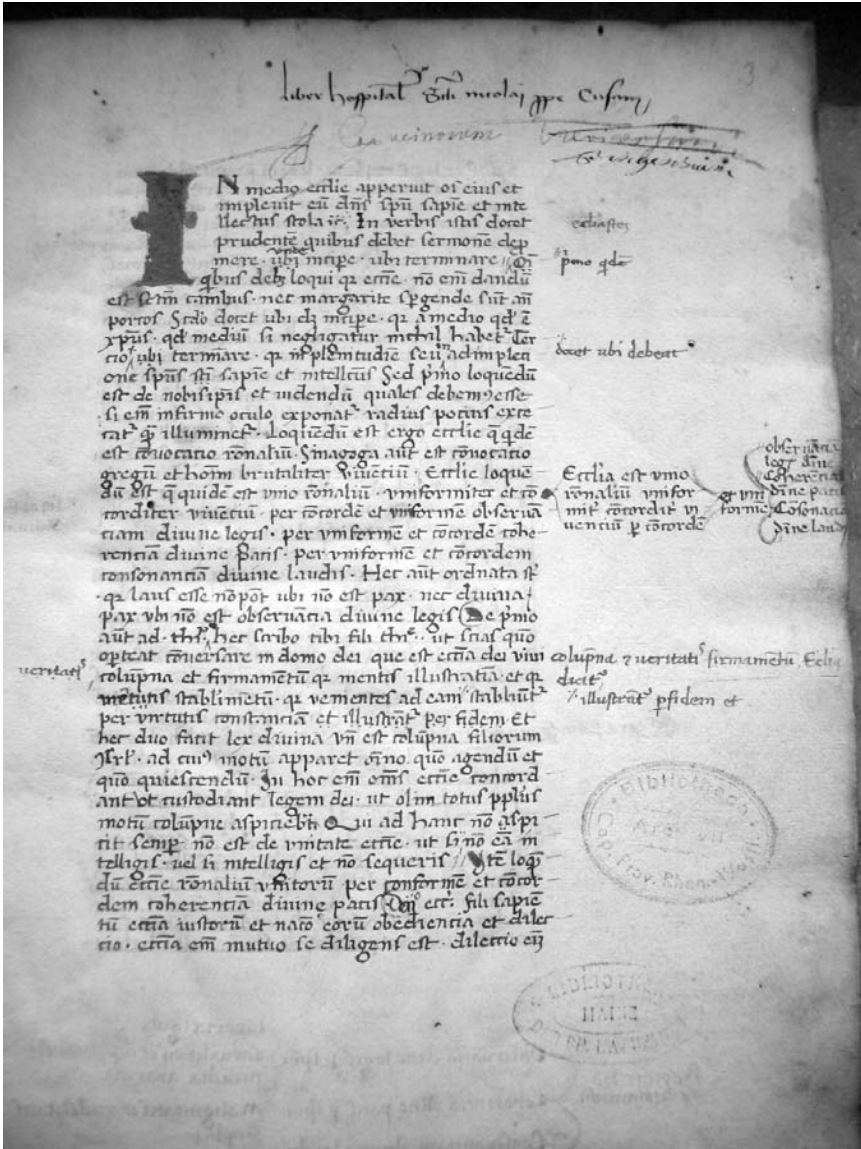 liber hospital Scti nicolai ppe Cusam
3
IN medio ecclie apperuit os eius et
implevit eū dn̄s spū sapīe et inte
llectus stola ⁊c. In verbis istis docet
prudentē quibus debet sermonē dep
mere. ubi incipe. ubi terminare
qibus debꝫ loqui qr eccīe. nō em̄ dandū
est sctm̄ canibus. nec margarite spgende sūt an̄
porcos Scdo docet ubi dꝫ incipe. qr a medio qd ē
xpūs. qd mediū si negligatur nichil habet Ter
cio ubi termīare. qr in plenitudīe seu adimpleti
one spūs sci sapīe et intellcūs Sed pimo loquēdū
est de nobis ipīs et videndū quales debemꝰ esse
si em̄ infirmo oculo exponat radius pocius exce
cat qm̄ illuminet. Loquēdū est ergo ecclīe q̄ qdē
est cōvocatio rōnaliū. Sinagoga aut est cōvocatio
gregū et hoīm brutaliter viventiū. Ecclīe loquē
dū est q̄ quidē est vnio rōnaliū. vniformiter et cō
corditer viventiū. per cōcordē et vniformē observā
ciam divine legis. per vniformē et cōcordē cohe
renciā divine pacis. per vniformē et cōcordem
consonanciā divine laudis. Hec aūt ordnata st
qr laus esse nō pōt ubi nō est pax. nec divina
pax vbi nō est observācia divine legis De pimo
aūt ad. thi. hec scribo tibi fili thi. ut scias quō
oporteat cōversare in domo dei que est eccīa dei vivi
colūpna et firmamentū qr mentis illustratīa et qr
virtutis stablimētū. qr vementes ad eam stabliūt
per virtutis constanciā et illustrāt per fidem Et
hec duo facit lex divina vn̄ est colūpna filiorum
Isrl. ad cuiꝰ motū apparet oīno quō agendū et
quō quiescendū. In hoc em̄ om̄s eccīe concord
ant vt custodiant legem dei. ut olim totus pplus
motū colūpne aspiciebt. Qui ad hanc nō aspi
cit semper nō est de vnitate eccīe. ut si nō eā in
telligis. vel si intelligis et nō sequeris Itē loqn
dū eccīe rōnaliū vnitorū per conformē et cōcor
dem coherenciā divine pacis eccī. fili sapiē
tū eccīa iustorū et nacō eorū obediencia et dilec
tio. eccīa em̄ mutuo se diligens est. dilectio
ecclīastes
pimo qdē
docet ubi debeat
Ecclīa est vnio
rōnaliū vnifor
mit cōcordit vi
venciū p cōcordē
et vni
formē
observācia
legis dīne
Coherencia
dīne pacis
Cōsonācia
dīne laudis
veritatis
colupna ⁊ veritatis firmamētū Ecclīa
dicit
illustrāt p fidem et
Bibliotheca
Cap. Prov. Rhen.
BIBLIOTHECA